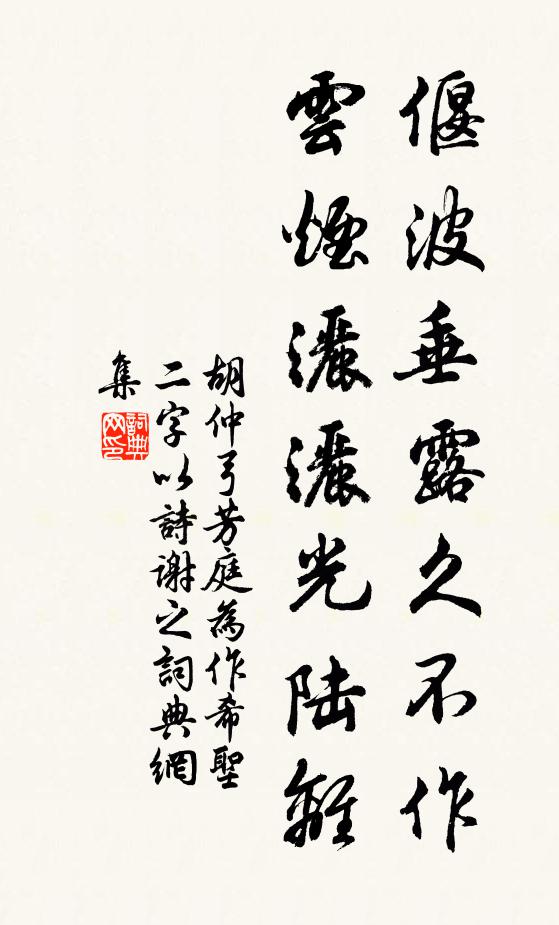 偃波垂露久不作
雲煙灑灑光陸離
胡仲弓芳庭為作希聖
二字以詩謝之詞典網
集
詞典
网印